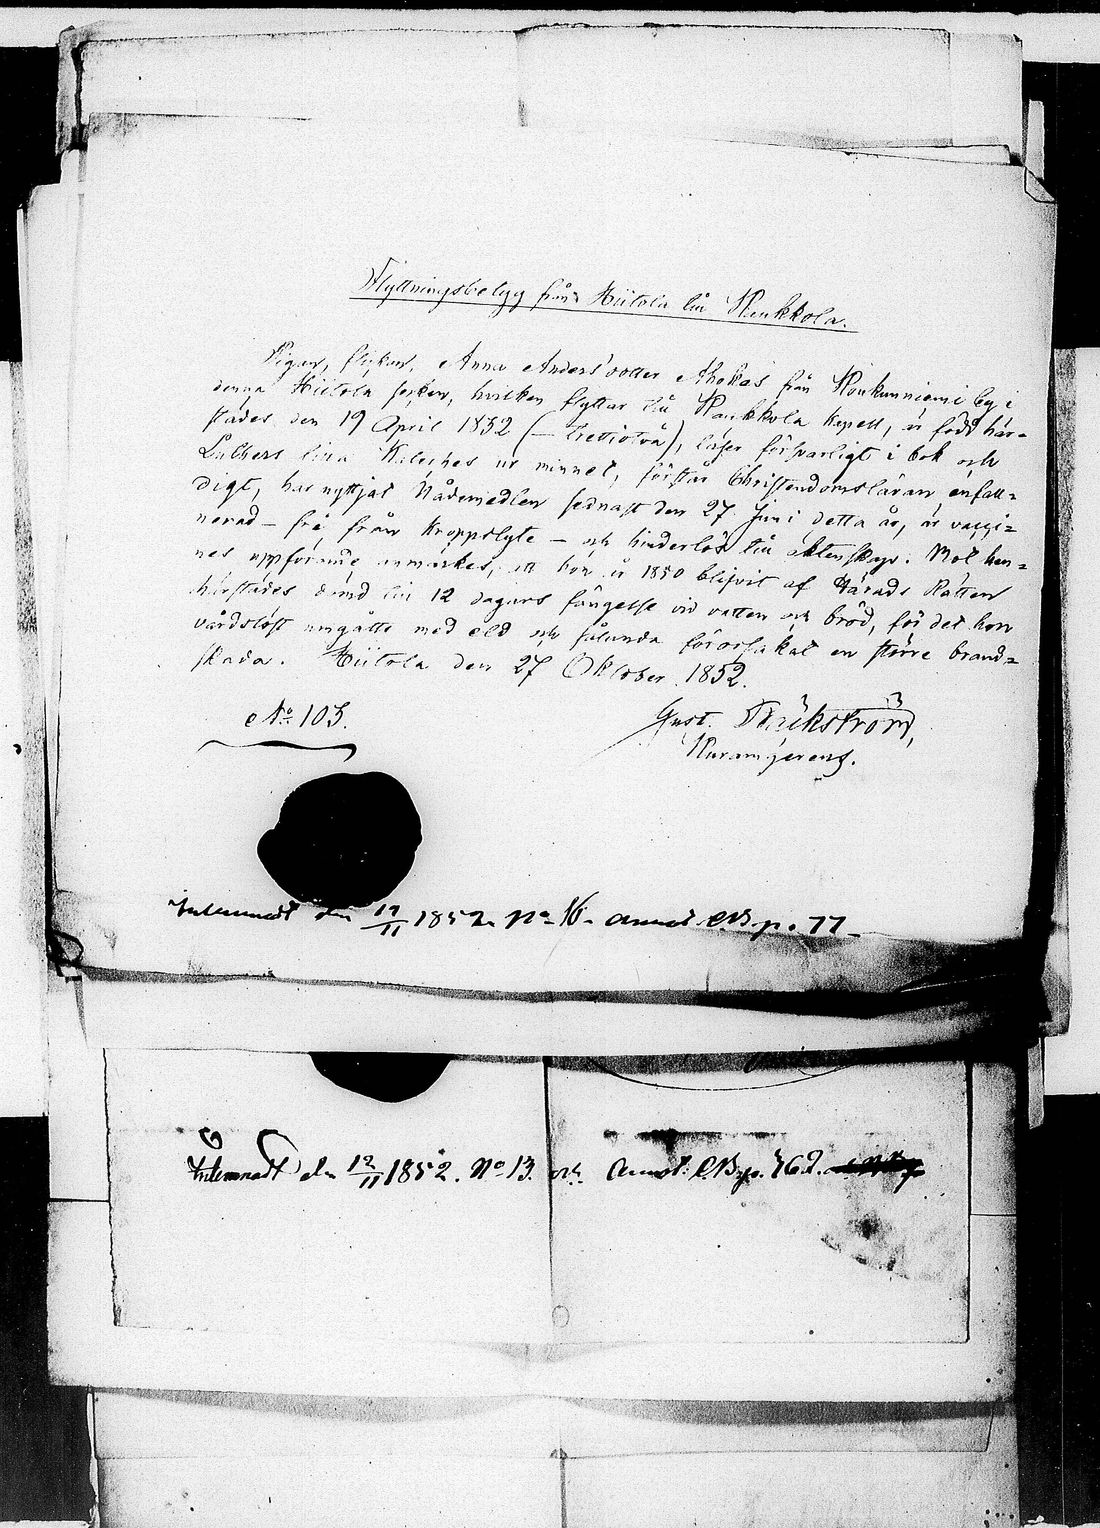 Flyttningsbetyg från Hiitola till Kaukkola.
Pigan, flickan, Anna Andersdotter Ahokas från Koukunniemi by i
denna Hiitola socken, hvilken flyttar till Kaukkola kapell, är född här-
städes den 19 April 1832 (– trettiotvå), läser försvarligt i bok och
Luthers lilla Kateches ur minnet, förstår Christendomsläran enfall=
digt, har nyttjat Nådemedlen sednast den 27 Juni detta år, är vacci-
nerad – fri från kroppslyte – och hinderlös till äktenskap. Mot hen=
nes uppförande anmärkes, att hon år 1850 blifvit af Härads Rätten
härstädes dömd till 12 dagars fängelse vid vatten och bröd, för det hon
vårdslöst umgåtts med eld och sålunda förorsakat en större brand=
skada. Hiitola den 27 Oktober 1852.
No 103.
Gust.
Inlemnadt den 19/11 1852. No 16. Annot. C.B. p. 77.
Inlemnadt den 12/11 1852. No 13. och Annot. C.B. p. 762.